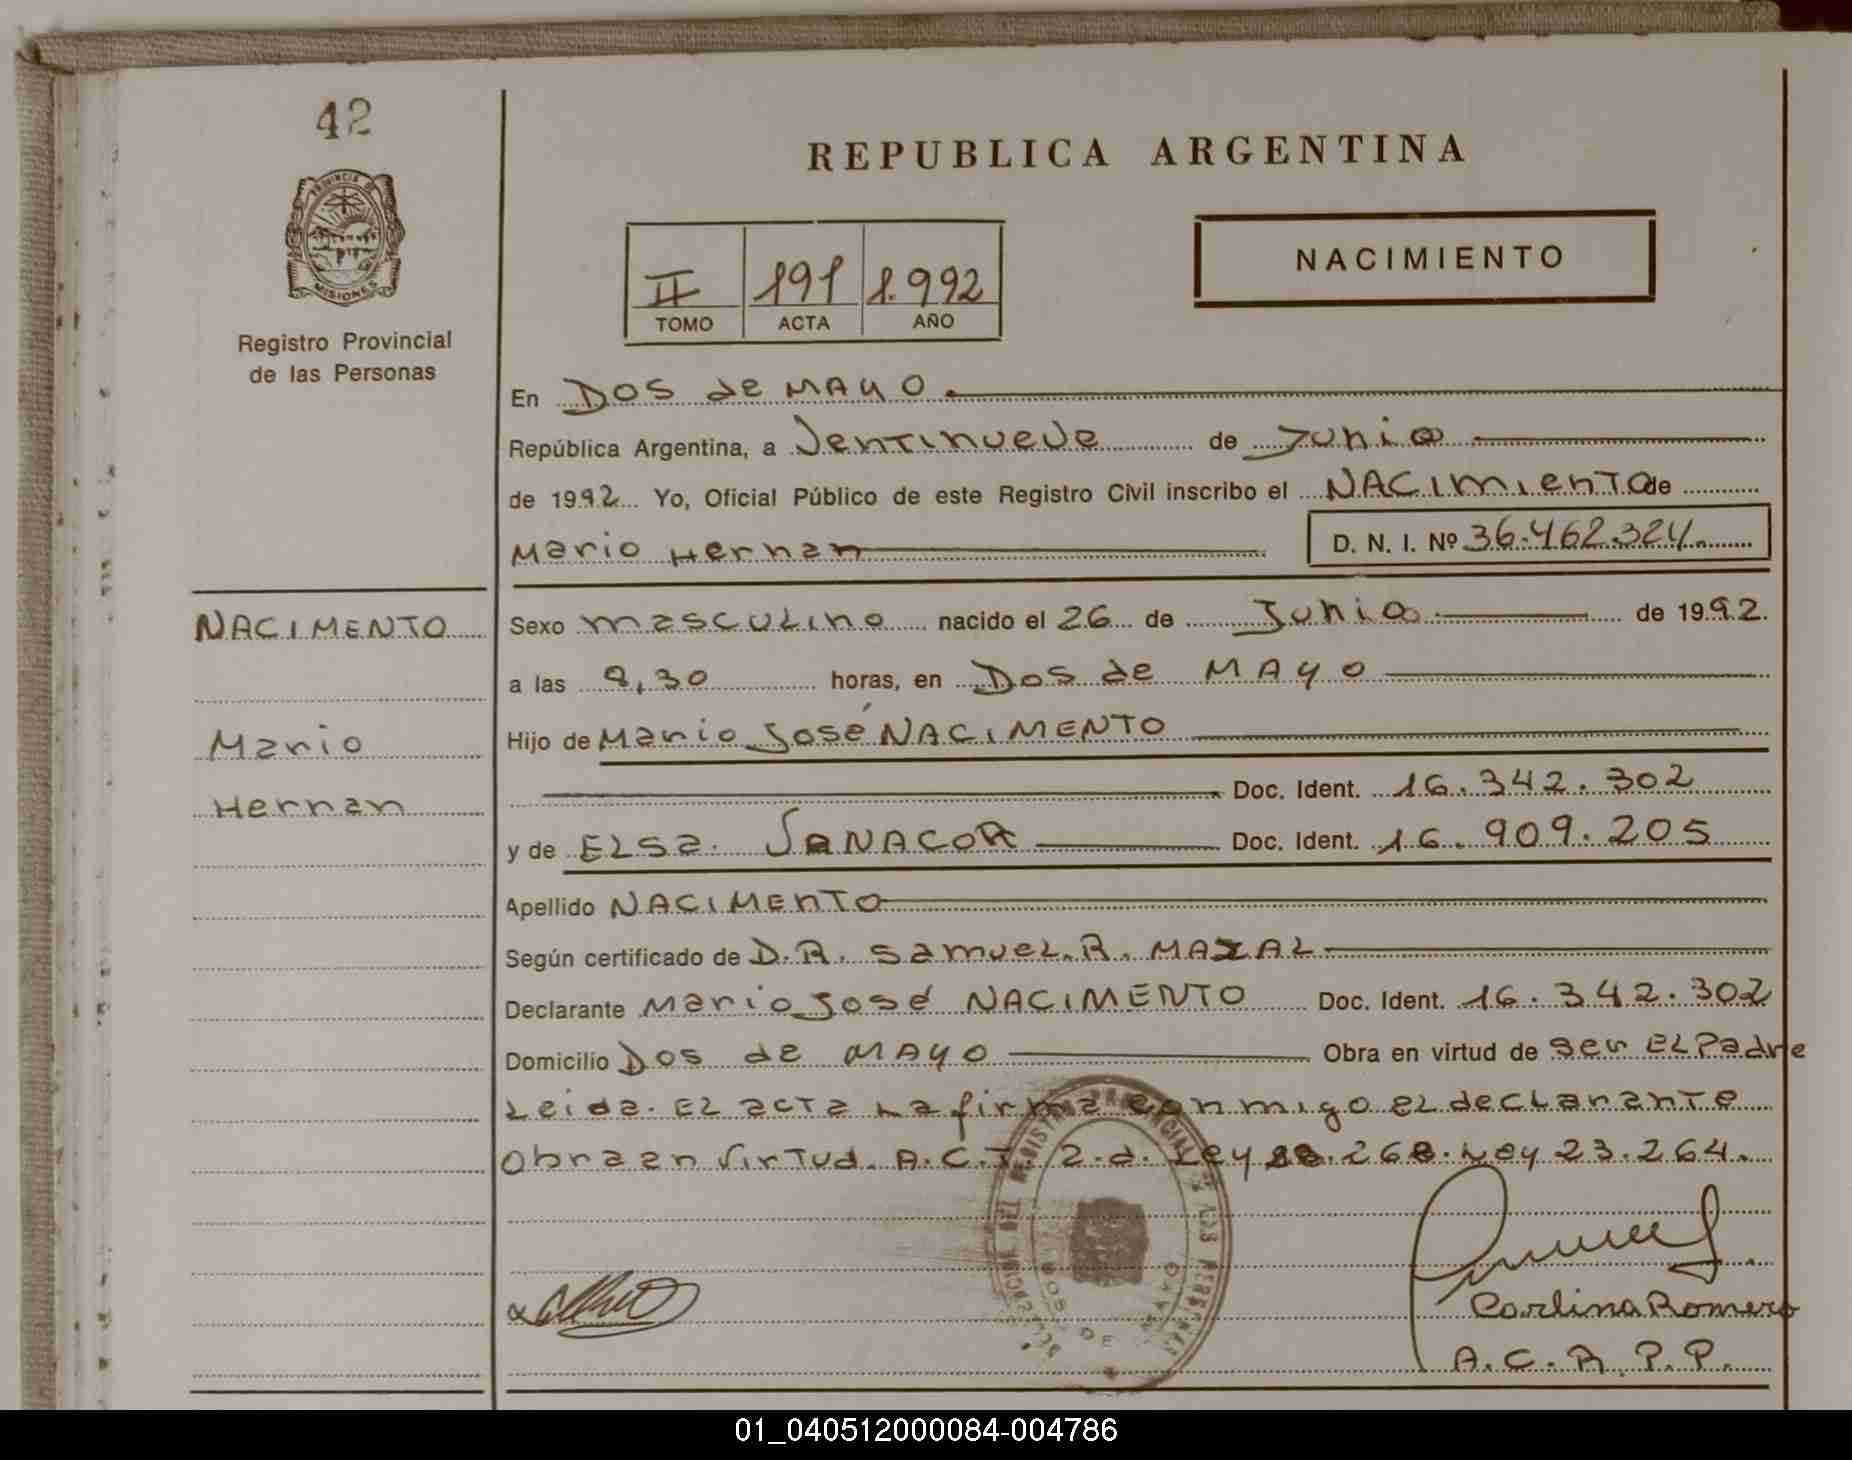 42
PROVINCIA DE
MISIONES
Registro Provincial
de las Personas
REPUBLICA ARGENTINA
II 191 1.992
TOMO ACTA AÑO
NACIMIENTO
En DOS de MAYO
República Argentina, a Ventinueve de Junio
de 1992 Yo, Oficial Público de este Registro Civil inscribo el NACIMIENTO de
Mario Hernan D. N. I. Nº 36.462.324
NACIMENTO
Mario
Hernan
Sexo masculino nacido el 26 de Junio de 1992.
a las 8,30 horas, en Dos de MAYO
Hijo de Mario José NACIMENTO
Doc. Ident. 16.342.302
y de ELSa. Doc. Ident. 16.909.205
Apellido NACIMENTO
Según certificado de D.R. Samuel.R.
Declarante Mario José NACIMENTO Doc. Ident. 16.342.302
Domicilio Dos de MAYO Obra en virtud de Ser EL Padre
Leida. EL acta La firma conmigo el declarante
Obra en Virtud. A.C.T. 2.d. Ley Ley 23.264.
DOS DE MAYO
Carlina Romero
A.C.R.P.P.
01_040512000084-004786